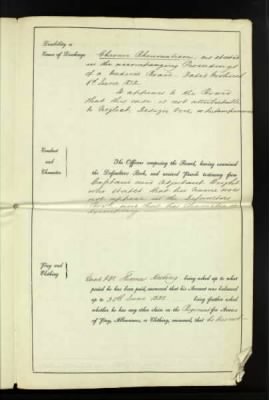 Disability or
Cause of Discharge
Chronic Rheumatism as stated
in the accompanying Proceedings
of a Medical Board. Dated
1st June
It appears to the Board
that this case is not attributable
to Neglect, Design, Vice, or Intemperance
Conduct
and
Character
The Officers composing the Board, having examined
the Defaulters' Book, and received Parole testimony from
Captain and Adjutant Wright
who states that his name does
not appear in the Defaulters
Book
Pay and
Clothing
being asked up to what
period he has been paid, answered that his Account was balanced
up to 30th June being further asked
whether he has any other claim on the Regiment for Arrears
of Pay, Allowances, or Clothing, answered, that he has not